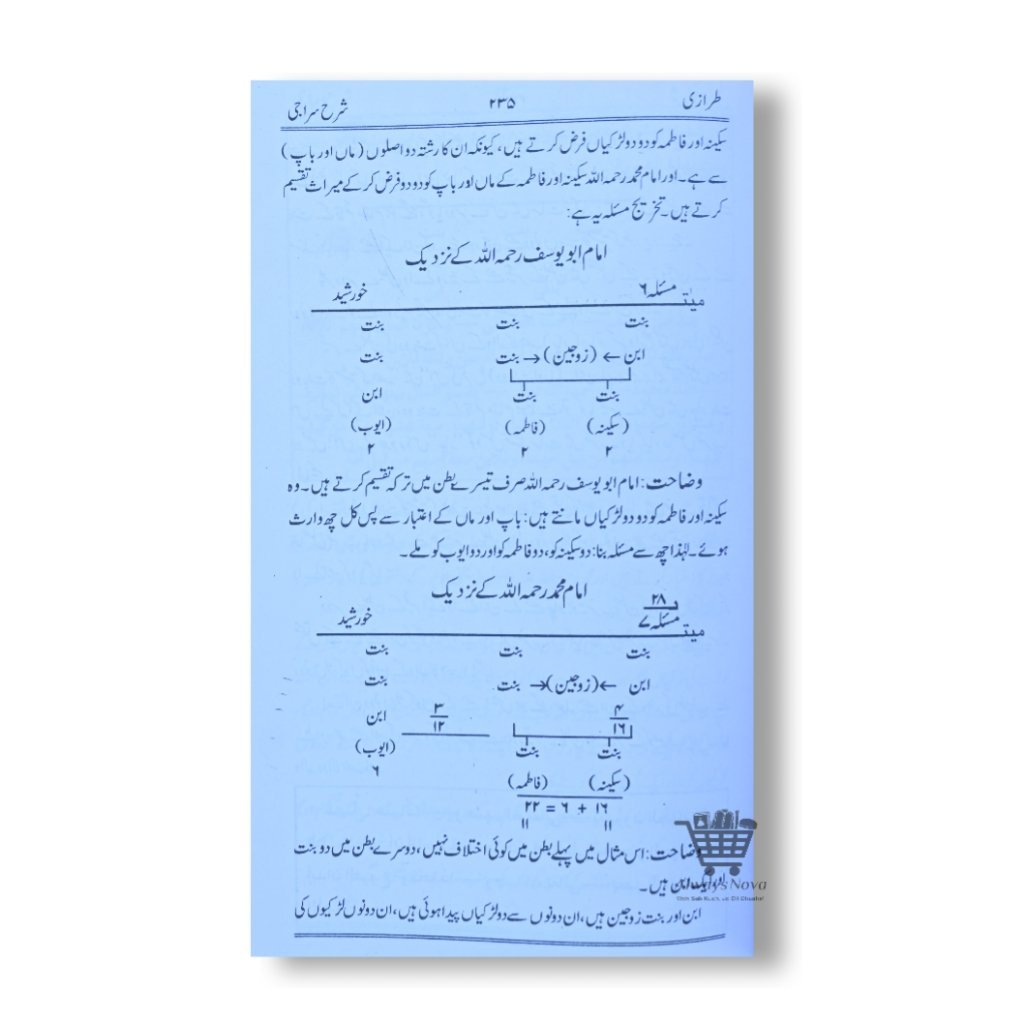 طرازی ۲۳۵ شرح سراجی
سکینہ اور فاطمہ کو دو دو لڑکیاں فرض کرتے ہیں، کیونکہ ان کا رشتہ دو اصلوں (ماں اور باپ)
سے ہے۔ اور امام محمد رحمہ اللہ سکینہ اور فاطمہ کے ماں اور باپ کو دو دو فرض کر کے میراث تقسیم
کرتے ہیں۔ تخریج مسئلہ یہ ہے:
امام ابو یوسف رحمہ اللہ کے نزدیک
میتـ مسئلہ ۶ خورشید
بنت بنت بنت
ابن ← (زوجین) → بنت بنت
بنت بنت ابن
(سکینہ) (فاطمہ) (ایوب)
۲ ۲ ۲
وضاحت: امام ابو یوسف رحمہ اللہ صرف تیسرے بطن میں ترکہ تقسیم کرتے ہیں۔ وہ
سکینہ اور فاطمہ کو دو دو لڑکیاں مانتے ہیں: باپ اور ماں کے اعتبار سے پس کل چھ وارث
ہوئے۔ لہٰذا چھ سے مسئلہ بنا: دو سکینہ کو، دو فاطمہ کو اور دو ایوب کو ملے۔
امام محمد رحمہ اللہ کے نزدیک
۲۸
میتـ مسئلہ ۷ خورشید
بنت بنت بنت
ابن ← (زوجین) → بنت بنت
۴ ۳ ابن
۱۶ ۱۲
بنت بنت (ایوب)
۶
(سکینہ) (فاطمہ)
۱۶ + ۶ = ۲۲
۱۱ ۱۱
وضاحت: اس مثال میں پہلے بطن میں کوئی اختلاف نہیں، دوسرے بطن میں دو بنت
اور ایک ابن ہیں۔
ابن اور بنت زوجین ہیں، ان دونوں سے دو لڑکیاں پیدا ہوئی ہیں، ان دونوں لڑکیوں کی